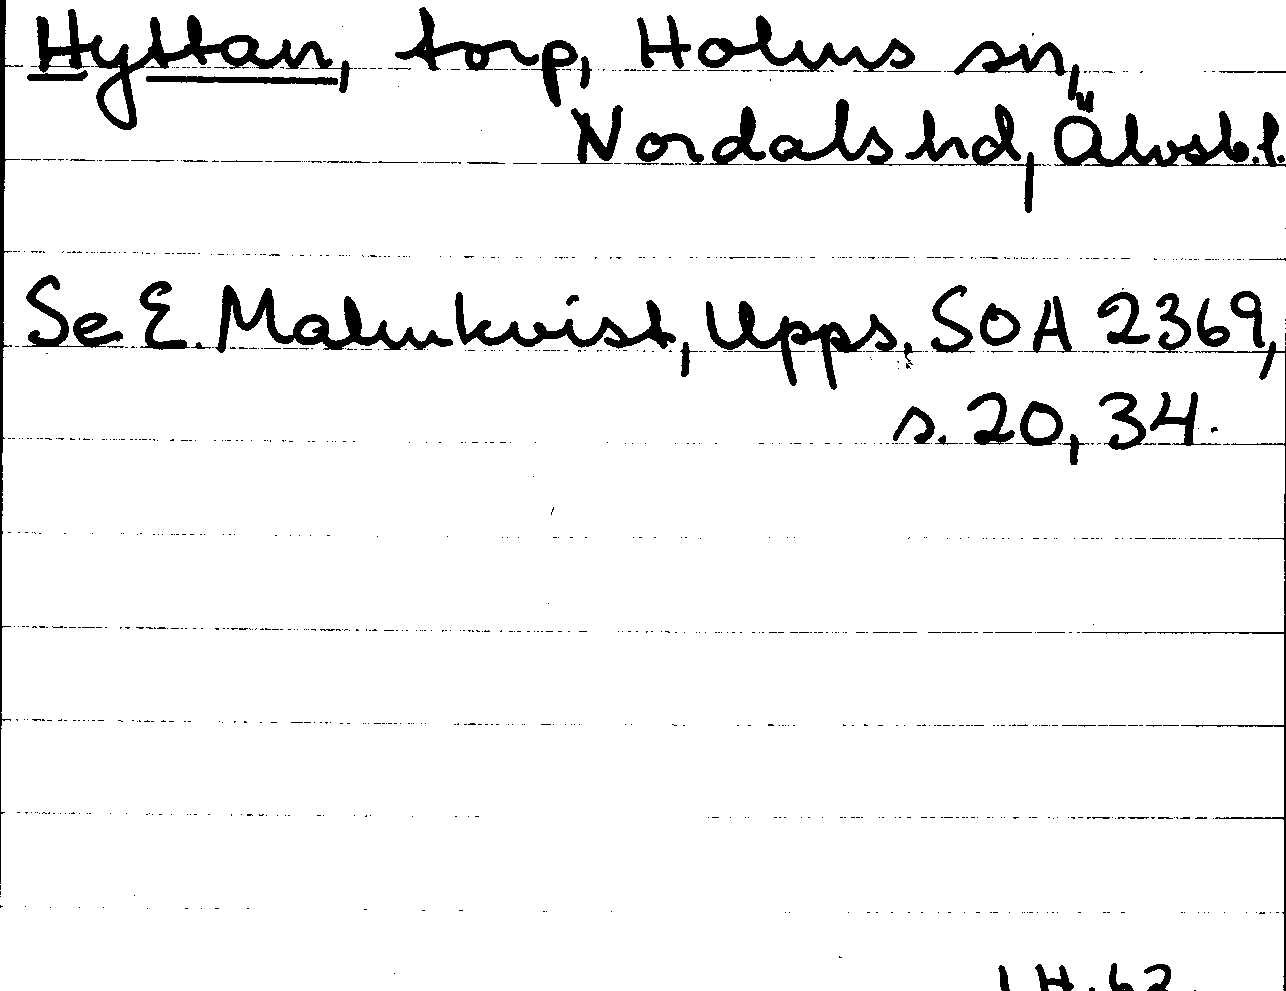 Hyttan, torp, Holms sn,
Nordals hd, Älvsb.l.
Se E. Malmkvist, Upps. SOA 2369,
s. 20, 34.